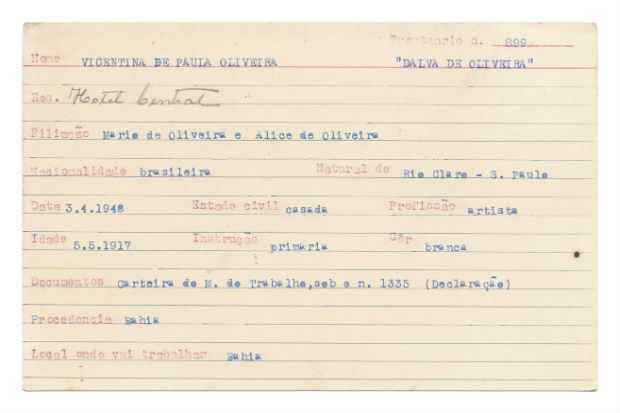 Prontuario n. 899
Nome VICENTINA DE PAULA OLIVEIRA "DALVA DE OLIVEIRA"
Res. Hotel Central
Filiação Mario de Oliveira e Alice de Oliveira
Nacionalidade brasileira Natural de Rio Claro - S. Paulo
Data 3.4.1948 Estado civil casada Profissão artista
Idade 5.5.1917 Instrução primaria Côr branca
Documentos Carteira de M. do Trabalho,sob o n. 1335 (Declaração)
Procedencia Bahia
Local onde vai trabalhar Bahia